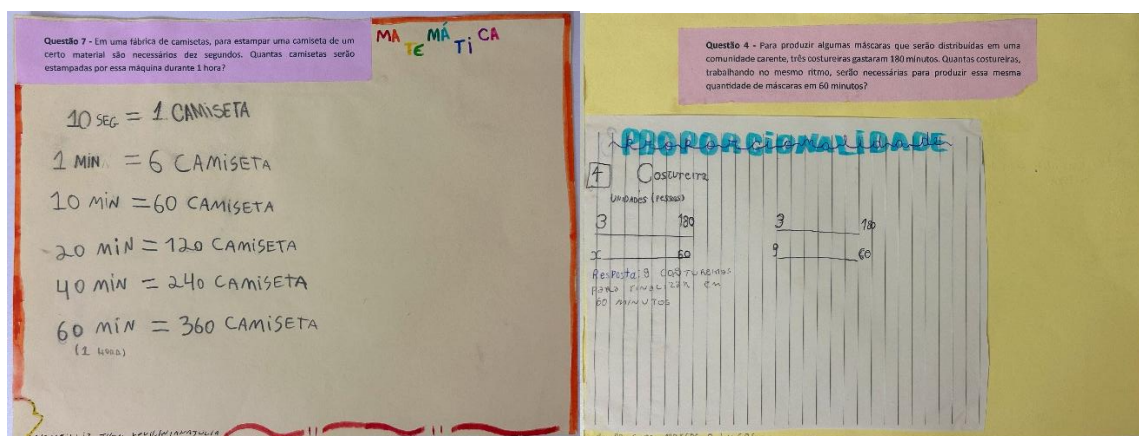 Questão 7 - Em uma fábrica de camisetas, para estampar uma camiseta de um
certo material são necessários dez segundos. Quantas camisetas serão
estampadas por essa máquina durante 1 hora?
MATEMÁTICA
10 SEG = 1 CAMISETA
1 MIN = 6 CAMISETA
10 MIN = 60 CAMISETA
20 MIN = 120 CAMISETA
40 MIN = 240 CAMISETA
60 MIN = 360 CAMISETA
(1 HORA)
Questão 4 - Para produzir algumas máscaras que serão distribuídas em uma
comunidade carente, três costureiras gastaram 180 minutos. Quantas costureiras,
trabalhando no mesmo ritmo, serão necessárias para produzir essa mesma
quantidade de máscaras em 60 minutos?
PROPORCIONALIDADE
4 Costureira
UNIDADES (PESSOAS)
3 180 3 180
x 60 9 60
Resposta: 9 COSTUREIRAS
PARA FINALIZAR EM
60 MINUTOS